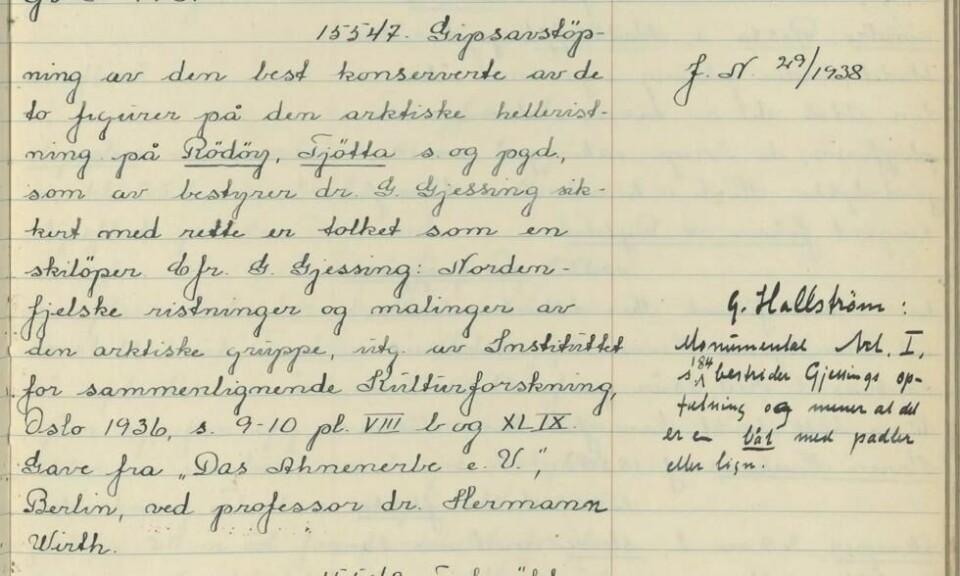 15547. Gipsavstöp-
ning av den best konserverte av de
to figurer på den arktiske hellerist-
ning på Rödöy, Tjötta s. og pgd.,
som av bestyrer dr. G. Gjessing sik-
kert med rette er tolket som en
skilöper Cfr. G. Gjessing: Norden-
fjelske ristninger og malinger av
den arktiske gruppe, utg. av Instituttet
for sammenlignende Kulturforskning,
Oslo 1936, s. 9-10 pl. VIII b og XLIX.
Gave fra „Das Ahnenerbe e. V.",
Berlin, ved professor dr. Hermann
Wirth.
J. N. 29/1938
G. Hallström:
Monumental Art. I,
s. 184 bestrider Gjessings op-
fatning og mener at det
er en båt med padler
eller lign.